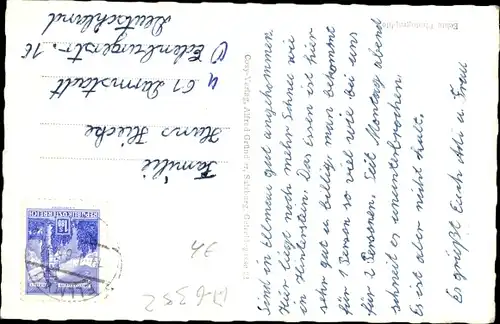 Sind in Ellmau gut angekommen.
Hier liegt noch mehr Schnee wie
in Hinterstein. Das Essen ist hier
sehr gut u. billig, man bekommt
für 1 Person so viel wie bei uns
für 2 Personen. Seit Montag abend
schneit es ununterbrochen.
Es ist aber nicht kalt.
Es grüßt Euch Adi u. Frau
Familie
Hans
61 Darmstadt
Edenburgerstr. 16
Deutschland
REPUBLIK ÖSTERREICH
A-6352